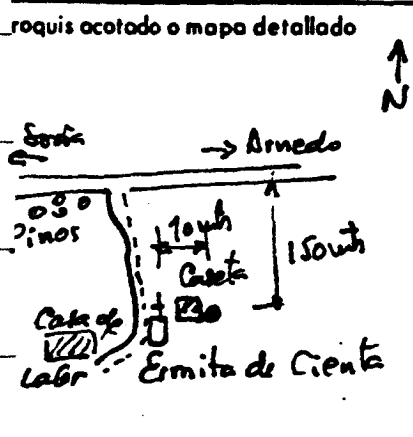 roquis acotado o mapa detallado
N
Soria
→ Arnedo
Pinos
10 mts
150 mts
Caseta
Casa de
Labor
Ermita de Cienta